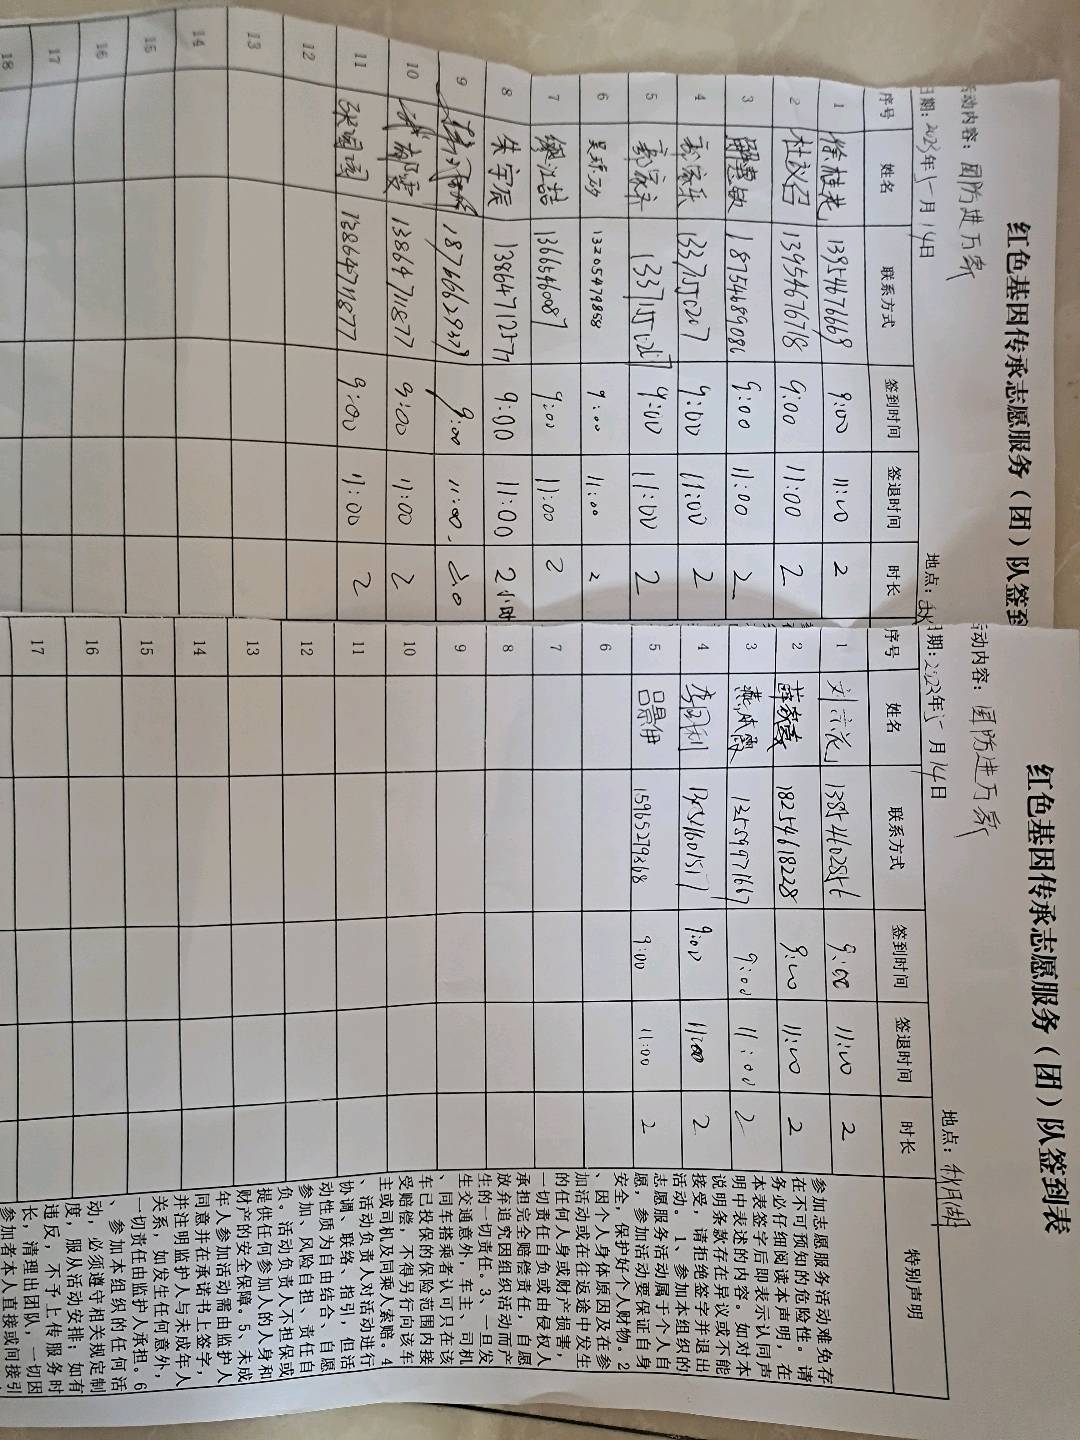 红色基因传承志愿服务（团）队签到
活动内容：国防进万家
日期：2023年5月14日 地点：
序号 姓名 联系方式 签到时间 签退时间 时长
1 徐桂花 13954676669 9:00 11:00 2
2 杜议召 13954676718 9:00 11:00 2
3 解慧敏 18754689086 9:00 11:00 2
4 9:00 11:00 2
5 9:00 11:00 2
6 13205479858 9:00 11:00 2
7 13665460087 9:00 11:00 2
8 朱宇辰 13864712377 9:00 11:00 2小时
9 18766629279 9:00 11:00
10 13864711877 9:00 11:00 2
11 13864711877 9:00 11:00 2
12
13
14
15
16
17
18
红色基因传承志愿服务（团）队签到表
活动内容：国防进万家
日期：2023年5月14日 地点：秋月湖
序号 姓名 联系方式 签到时间 签退时间 时长 特别声明
1 13854602856 9:00 11:00 2
2 薛蓉蓉 18254618228 9:00 11:00 2
3 燕成霞 13589971667 9:00 11:00 2
4 李国利 9:00 11:00 2
5 15965279368 9:00 11:00 2
6
7
8
9
10
11
12
13
14
15
16
17
参加志愿服务活动难免存
在不可预知的危险性。请
务必仔细阅读本声明，在
本表签字后即表示认同声
明中表述的内容。如对本
说明条款存在异议或不能
接受，请拒绝签字并退出
活动。1、参加本组织的
志愿服务活动属于个人自
愿，参加活动要保证自身
安全，保护好个人财物。2
、因个人身体原因及在参
加活动或在往返途中发生
的任何人身或财产损害，
一切责任自负或由侵权人
承担完全赔偿责任，自愿
放弃追究因组织活动而产
生的一切责任。3、一旦发
生交通意外，车主、司机
、同车搭乘者认可只在该
车已投保的保险范围内接
受赔偿，不得另行向该车
主或司机及同乘人索赔。4
、活动负责人对活动进行
协调、联络、指引，但活
动性质为自由结合、自愿
参加、风险自担、责任自
负。活动负责人不担保或
提供任何参加人的人身和
财产的安全保障。5、未成
年人参加活动需由监护人
同意并在承诺书上签字，
并注明监护人与未成年人
关系，如发生任何意外，
一切责任由监护人承担。6
、参加本组织的任何活
动，必须遵守相关规定制
度，服从活动安排；如有
违反，不予上传服务时
长，清理出团队，一切因
参加者本人直接或间接引